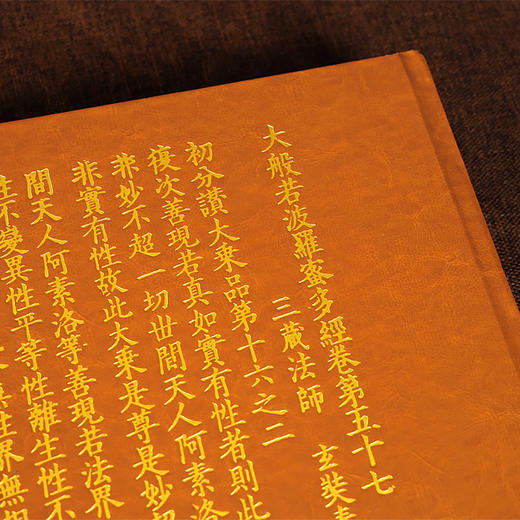 大般若波羅蜜多經卷第五十七
三藏法師 玄奘
初分讚大乗品第十六之二
復次善現若真如實有性者則此
非妙不超一切世間天人阿素洛
非實有性故此大乗是尊是妙
間天人阿素洛等善現若法界
性不變異性平等性離生性不
性界無